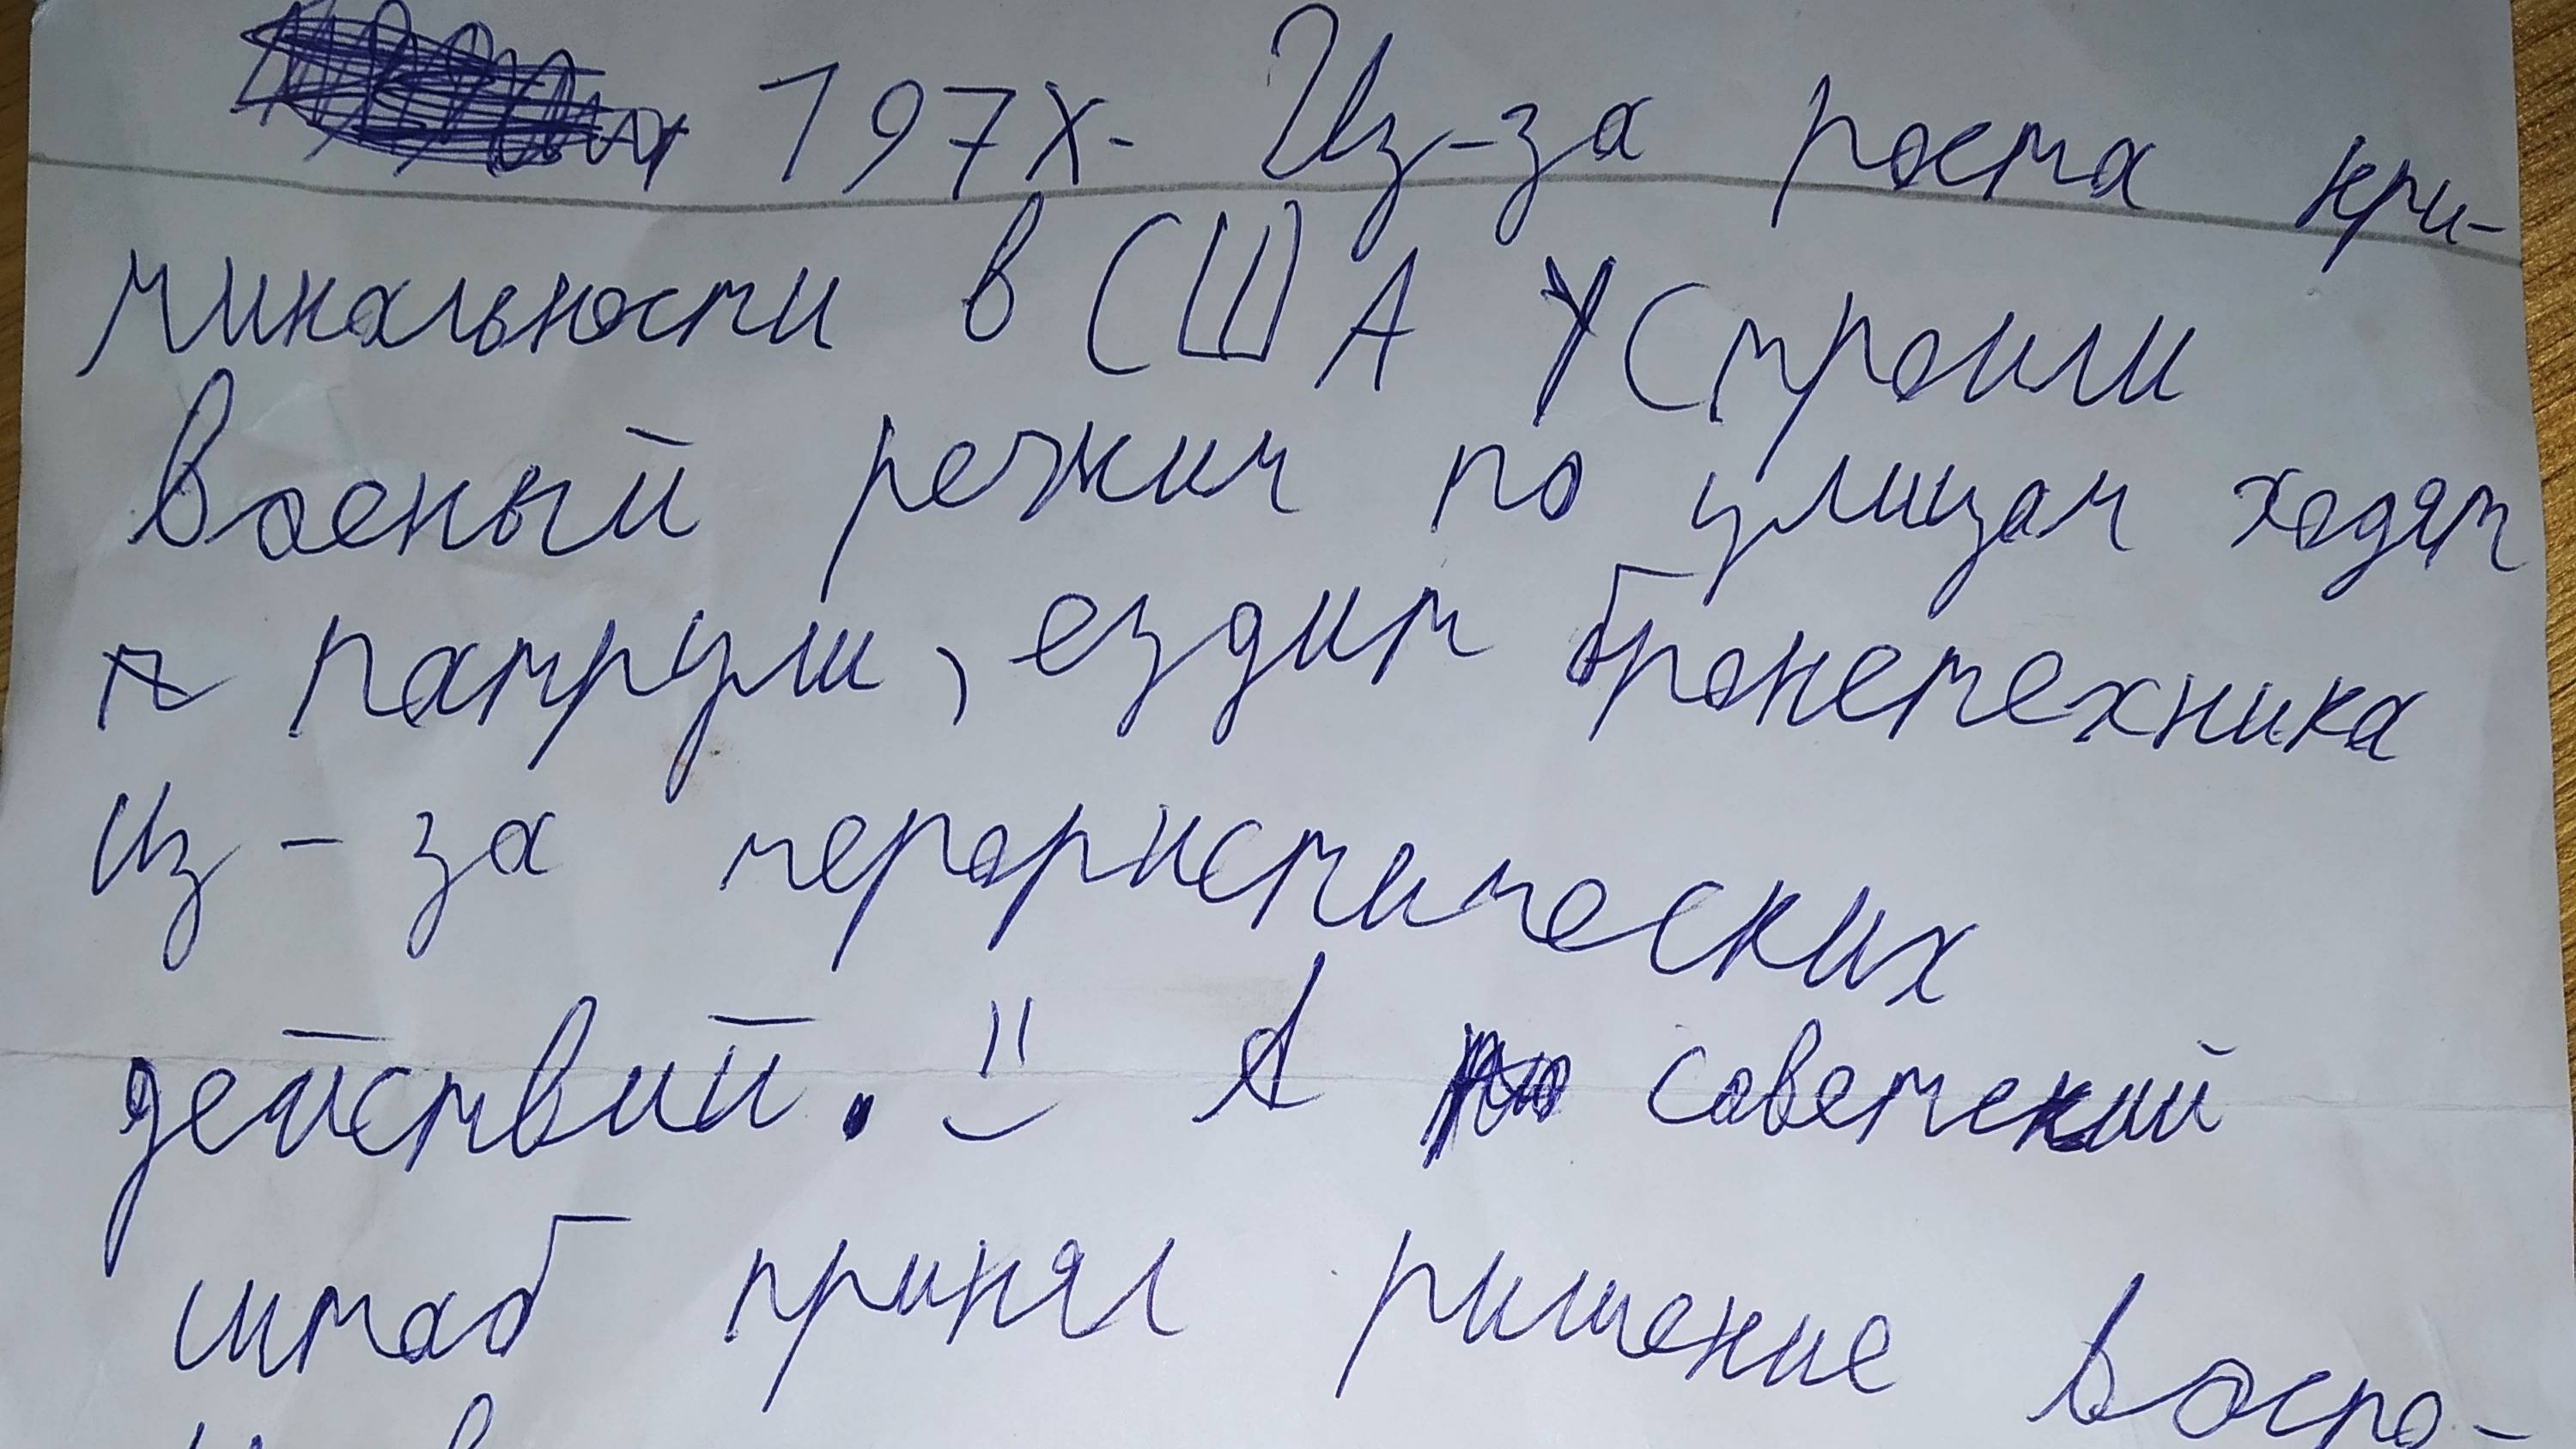 197X- Из-за роста кри-
минальности в США устроили
военый режим по улицам ходят
патрули, ездит бронетехника
из-за терористических
действий. А советский
штаб принял ришение воспо-